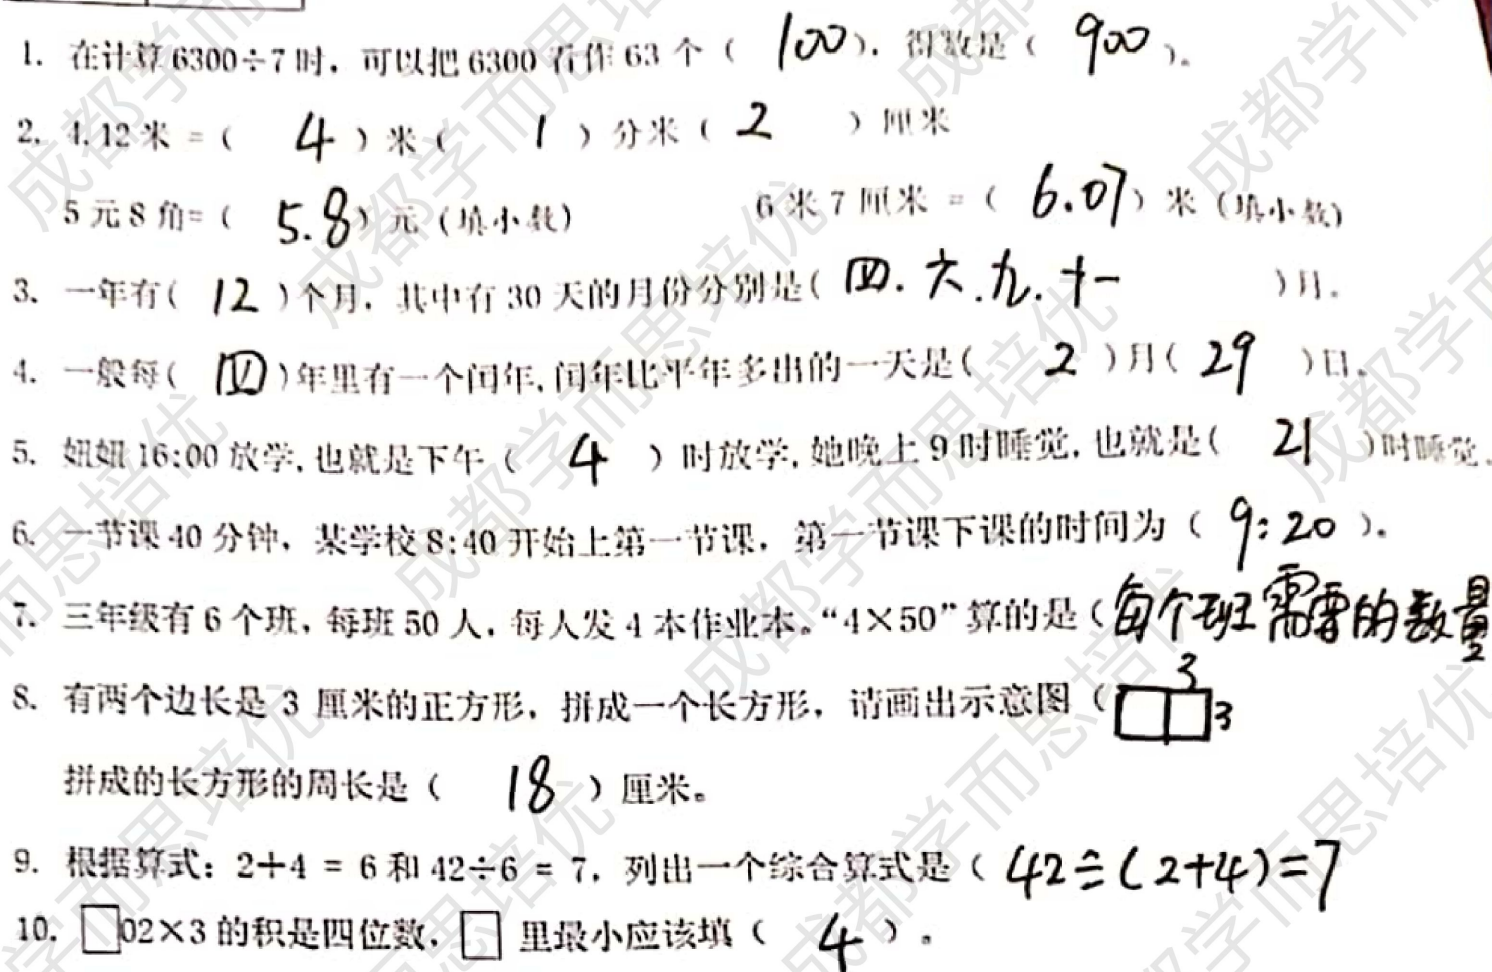 1. 在计算6300÷7时，可以把6300看作63个（ 100 ），得数是（ 900 ）。
2. 4.12米 =（ 4 ）米（ 1 ）分米（ 2 ）厘米
5元8角=（ 5.8 ）元（填小数） 6米7厘米 =（ 6.07 ）米（填小数）
3. 一年有( 12 )个月，其中有30天的月份分别是( 四.六.九.十一 )月。
4. 一般每( 四 )年里有一个闰年,闰年比平年多出的一天是( 2 )月( 29 )日。
5. 妞妞16:00放学,也就是下午（ 4 ）时放学,她晚上9时睡觉,也就是( 21 )时睡觉.
6. 一节课40分钟，某学校8:40开始上第一节课，第一节课下课的时间为（ 9:20 ）。
7. 三年级有6个班，每班50人，每人发4本作业本。“4×50”算的是（每个班需要的数量
8. 有两个边长是3厘米的正方形，拼成一个长方形，请画出示意图（ 3 3
拼成的长方形的周长是（ 18 ）厘米。
9. 根据算式：2+4 = 6和42÷6 = 7，列出一个综合算式是（ 42÷(2+4)=7
10. □02×3的积是四位数，□里最小应该填（ 4 ）。
成都学而思培优